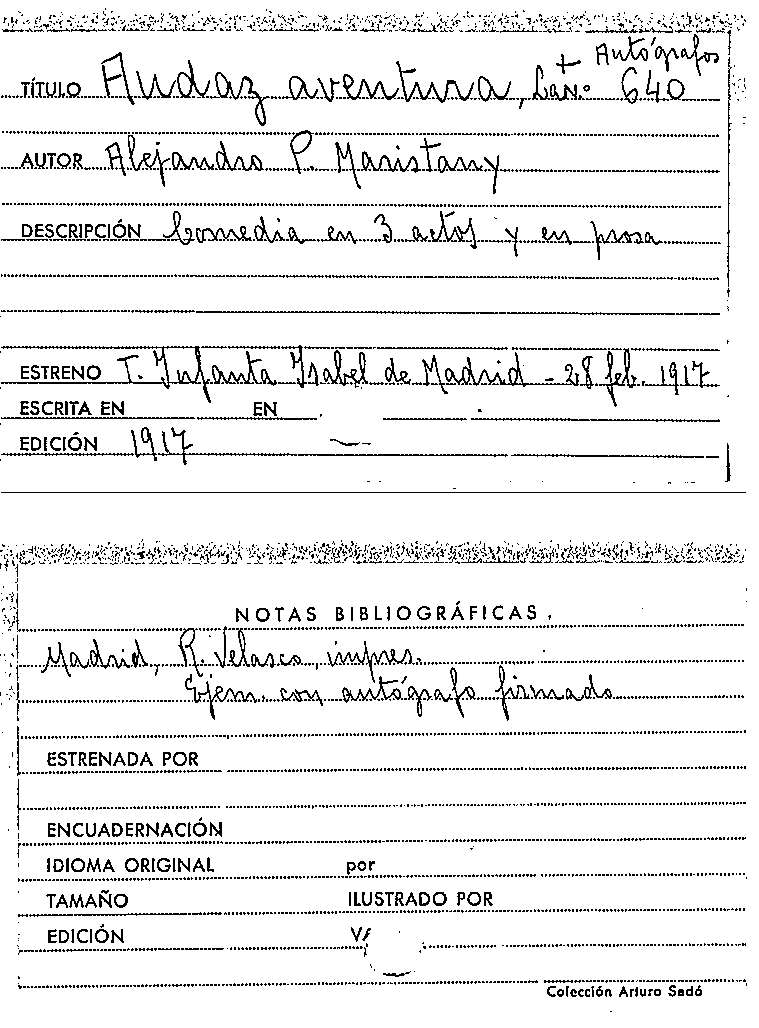 + Autógrafos
TÍTULO Audaz aventura, 640
AUTOR Alejandro P. Maristany
DESCRIPCIÓN Comedia en 3 actos y en prosa
ESTRENO T. Infanta Isabel de Madrid - 28 feb. 1917
ESCRITA EN EN
EDICIÓN 1917
NOTAS BIBLIOGRÁFICAS
Madrid, R. Velasco, impres.
Ejem. con autógrafo firmado
ESTRENADA POR
ENCUADERNACIÓN
IDIOMA ORIGINAL por
TAMAÑO ILUSTRADO POR
EDICIÓN
Colección Arturo Sedó